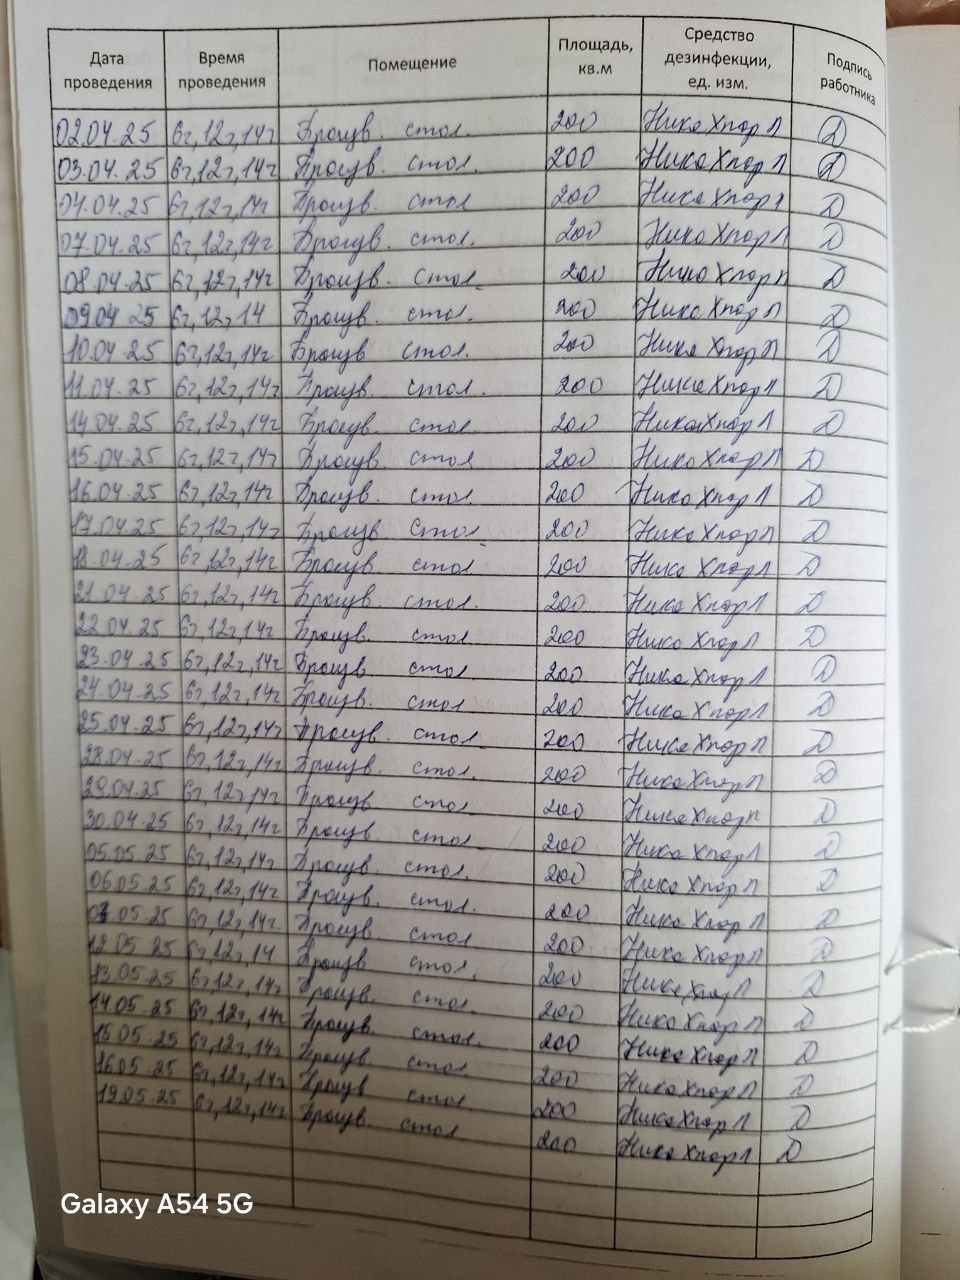 Дата проведения Время проведения Помещение Площадь, кв.м Средство дезинфекции, ед. изм. Подпись работника
02.04.25 6ч,12ч,14ч Произв. стол. 200 Ника Хлор Л Д
03.04.25 6ч,12ч,14ч Произв. стол. 200 Ника Хлор Л Д
04.04.25 6ч,12ч,14ч Произв. стол 200 Ника Хлор Л Д
07.04.25 6ч,12ч,14ч Произв. стол. 200 Ника Хлор Л Д
08.04.25 6ч,12ч,14ч Произв. стол. 200 Ника Хлор Л Д
09.04 25 6ч,12ч,14 Произв. стол. 200 Ника Хлор Л Д
10.04.25 6ч,12ч,14ч Произв. стол. 200 Ника Хлор Л Д
11.04.25 6ч,12ч,14ч Произв. стол. 200 Ника Хлор Л Д
14.04.25 6ч,12ч,14ч Произв. стол. 200 Ника Хлор Л Д
15.04.25 6ч,12ч,14ч Произв. стол 200 Ника Хлор Л Д
16.04.25 6ч,12ч,14ч Произв. стол 200 Ника Хлор Л Д
17.04.25 6ч,12ч,14ч Произв. стол. 200 Ника Хлор Л Д
18.04.25 6ч,12ч,14ч Произв. стол 200 Ника Хлор Л Д
21.04.25 6ч,12ч,14ч Произв. стол. 200 Ника Хлор Л Д
22.04.25 6ч,12ч,14ч Произв. стол 200 Ника Хлор Л Д
23.04.25 6ч,12ч,14ч Произв. стол 200 Ника Хлор Л Д
24.04.25 6ч,12ч,14ч Произв. стол 200 Ника Хлор Л Д
25.04.25 6ч,12ч,14ч Произв. стол. 200 Ника Хлор Л Д
28.04.25 6ч,12ч,14ч Произв. стол. 200 Ника Хлор Л Д
29.04.25 6ч,12ч,14ч Произв. стол 200 Ника Хлор Л Д
30.04.25 6ч,12ч,14ч Произв. стол. 200 Ника Хлор Л Д
05.05.25 6ч,12ч,14ч Произв. стол. 200 Ника Хлор Л Д
06.05.25 6ч,12ч,14ч Произв. стол. 200 Ника Хлор Л Д
07.05.25 6ч,12ч,14ч. Произв. стол 200 Ника Хлор Л Д
12.05.25 6ч,12ч,14 Произв. стол. 200 Ника Хлор Л Д
13.05.25 6ч,12ч,14ч Произв. стол. 200 Ника Хлор Л Д
14.05.25 6ч,12ч,14ч Произв. стол. 200 Ника Хлор Л Д
15.05.25 6ч,12ч,14ч Произв. стол. 200 Ника Хлор Л Д
16.05.25 6ч,12ч,14ч Произв. стол. 200 Ника Хлор Л Д
19.05.25 6ч,12ч,14ч Произв. стол 200 Ника Хлор Л Д
Galaxy A54 5G